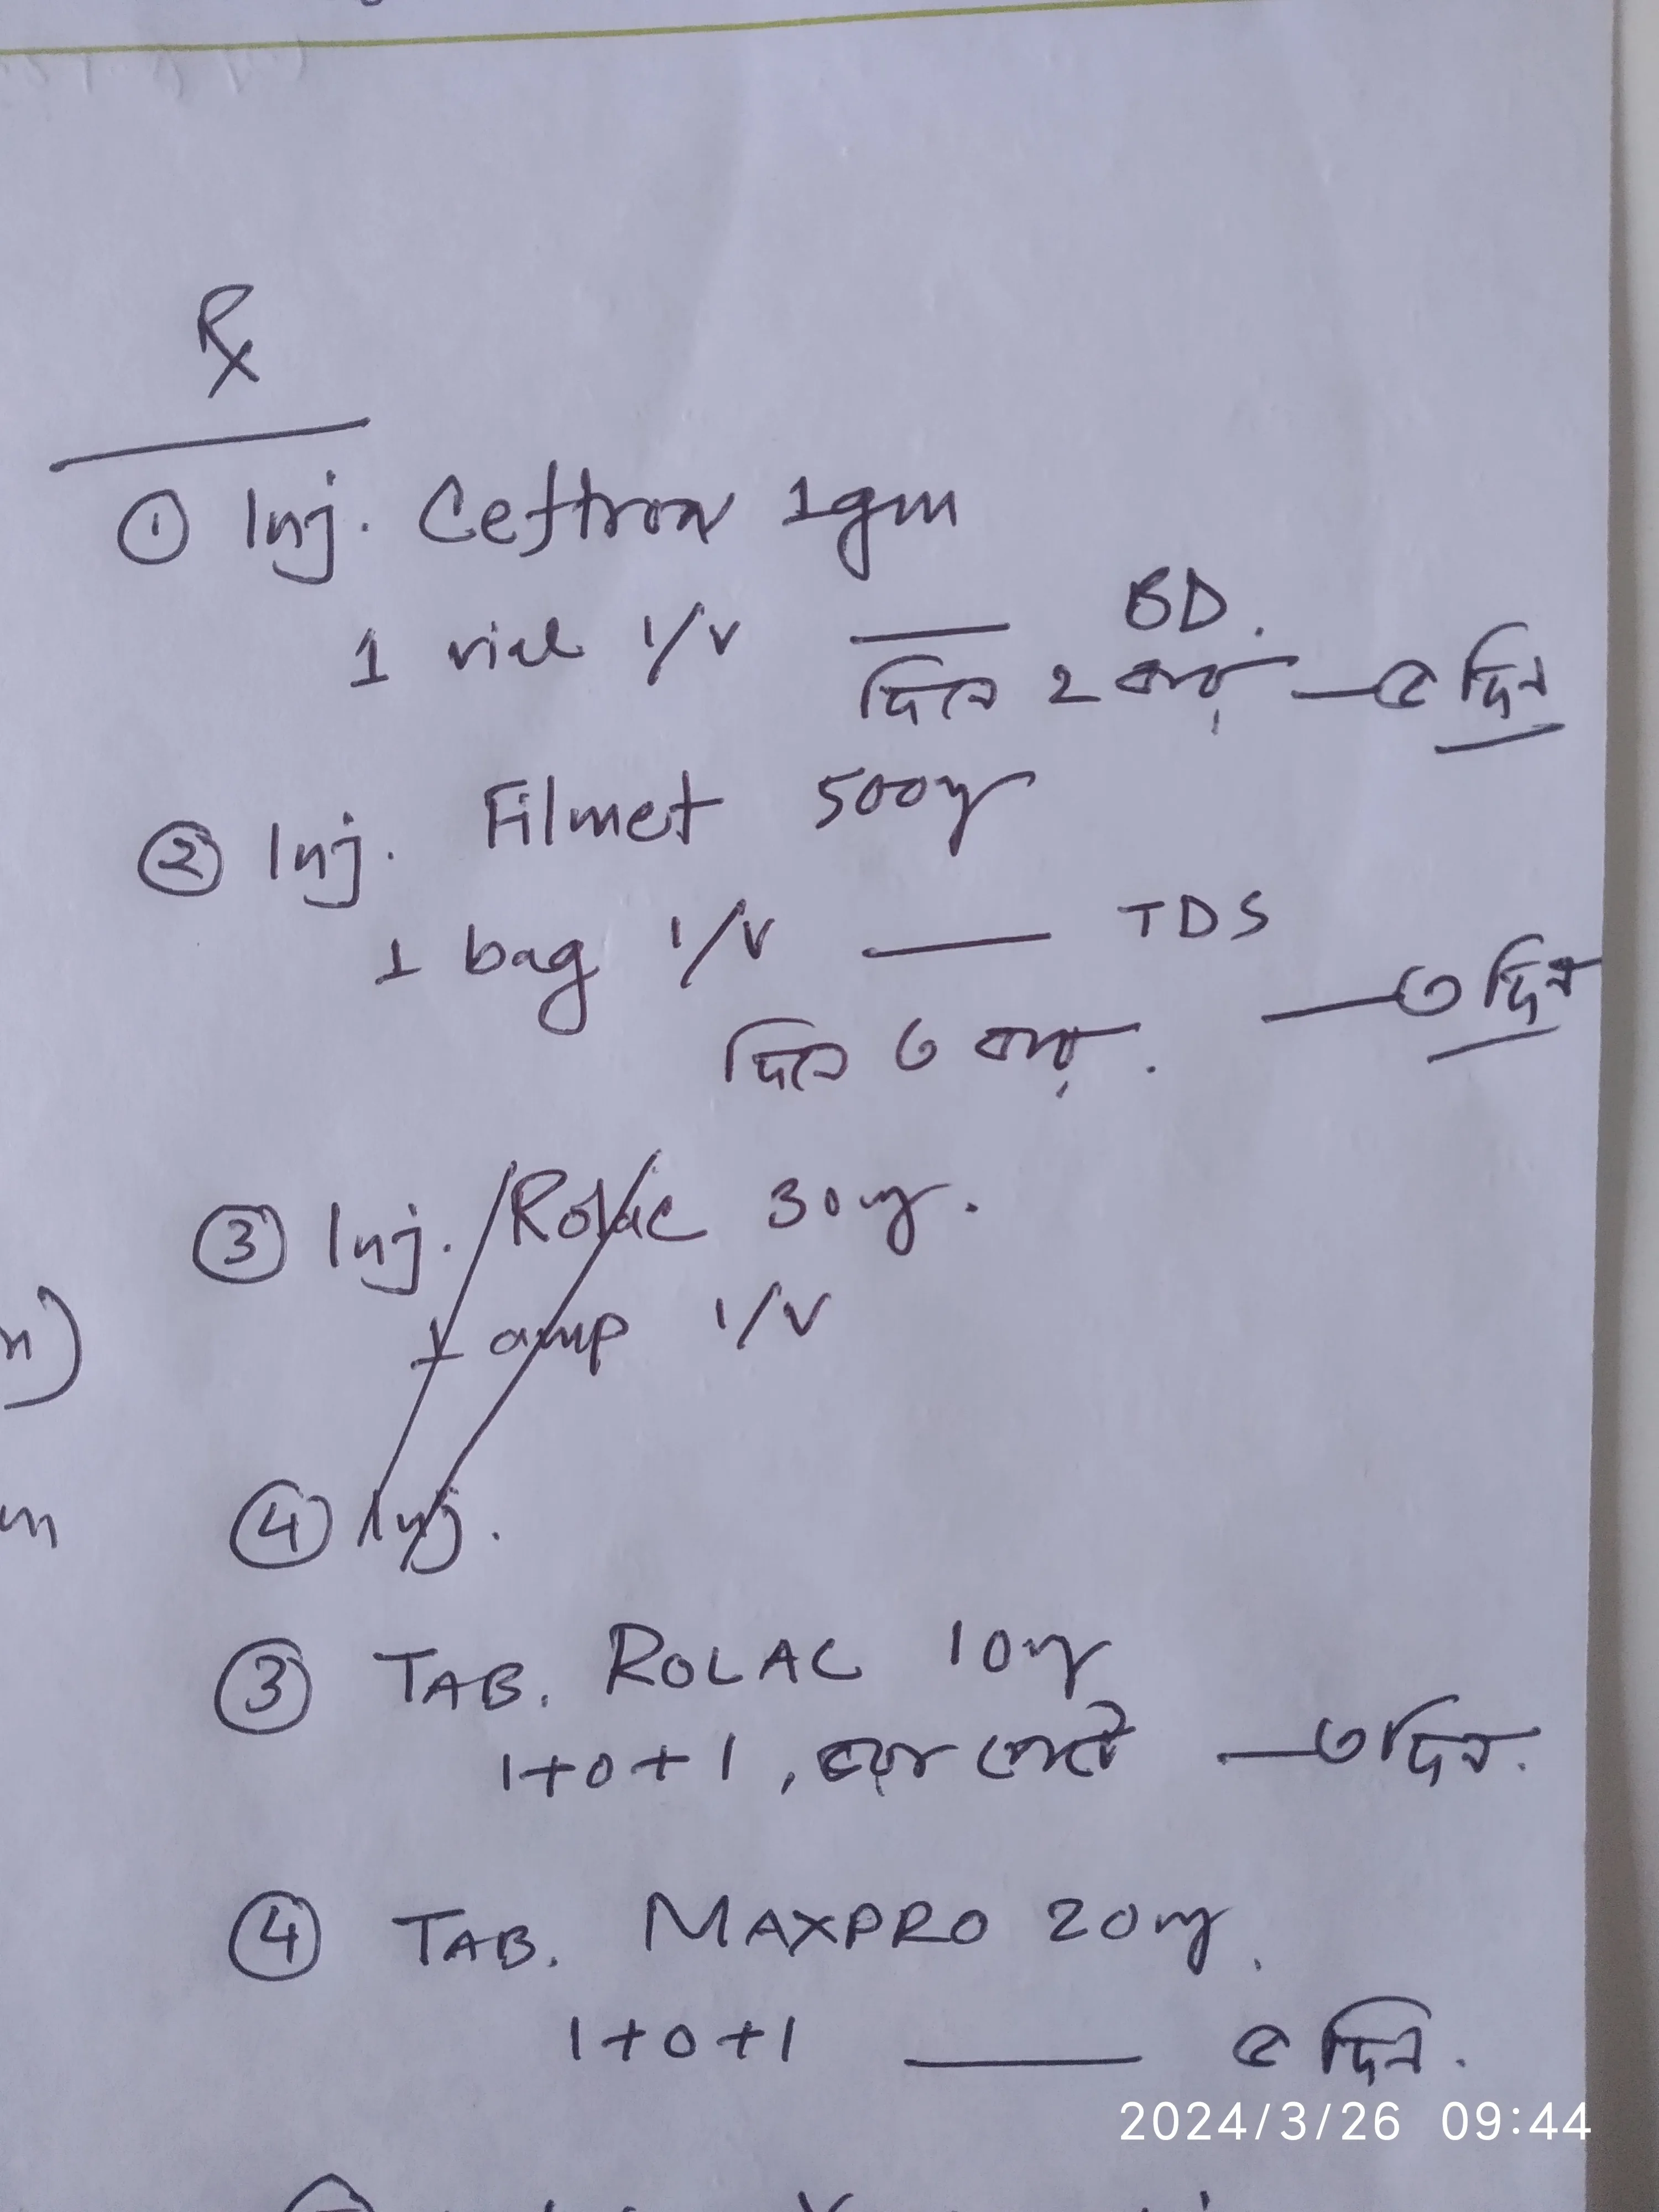 Rx
① Inj. Ceftron 1gm
1 vial I/V — BD.
দিনে ২ বার — ৫ দিন
② Inj. Filmet 500mg
1 bag I/V — TDS
দিনে ৩ বার. — ৩ দিন
③ Inj. Rolac 30mg.
1 amp I/V
④ Inj.
③ TAB. ROLAC 10mg
1+0+1, ভরা পেটে — ৩ দিন.
④ TAB. MAXPRO 20mg.
1+0+1 — ৫ দিন.
2024/3/26 09:44